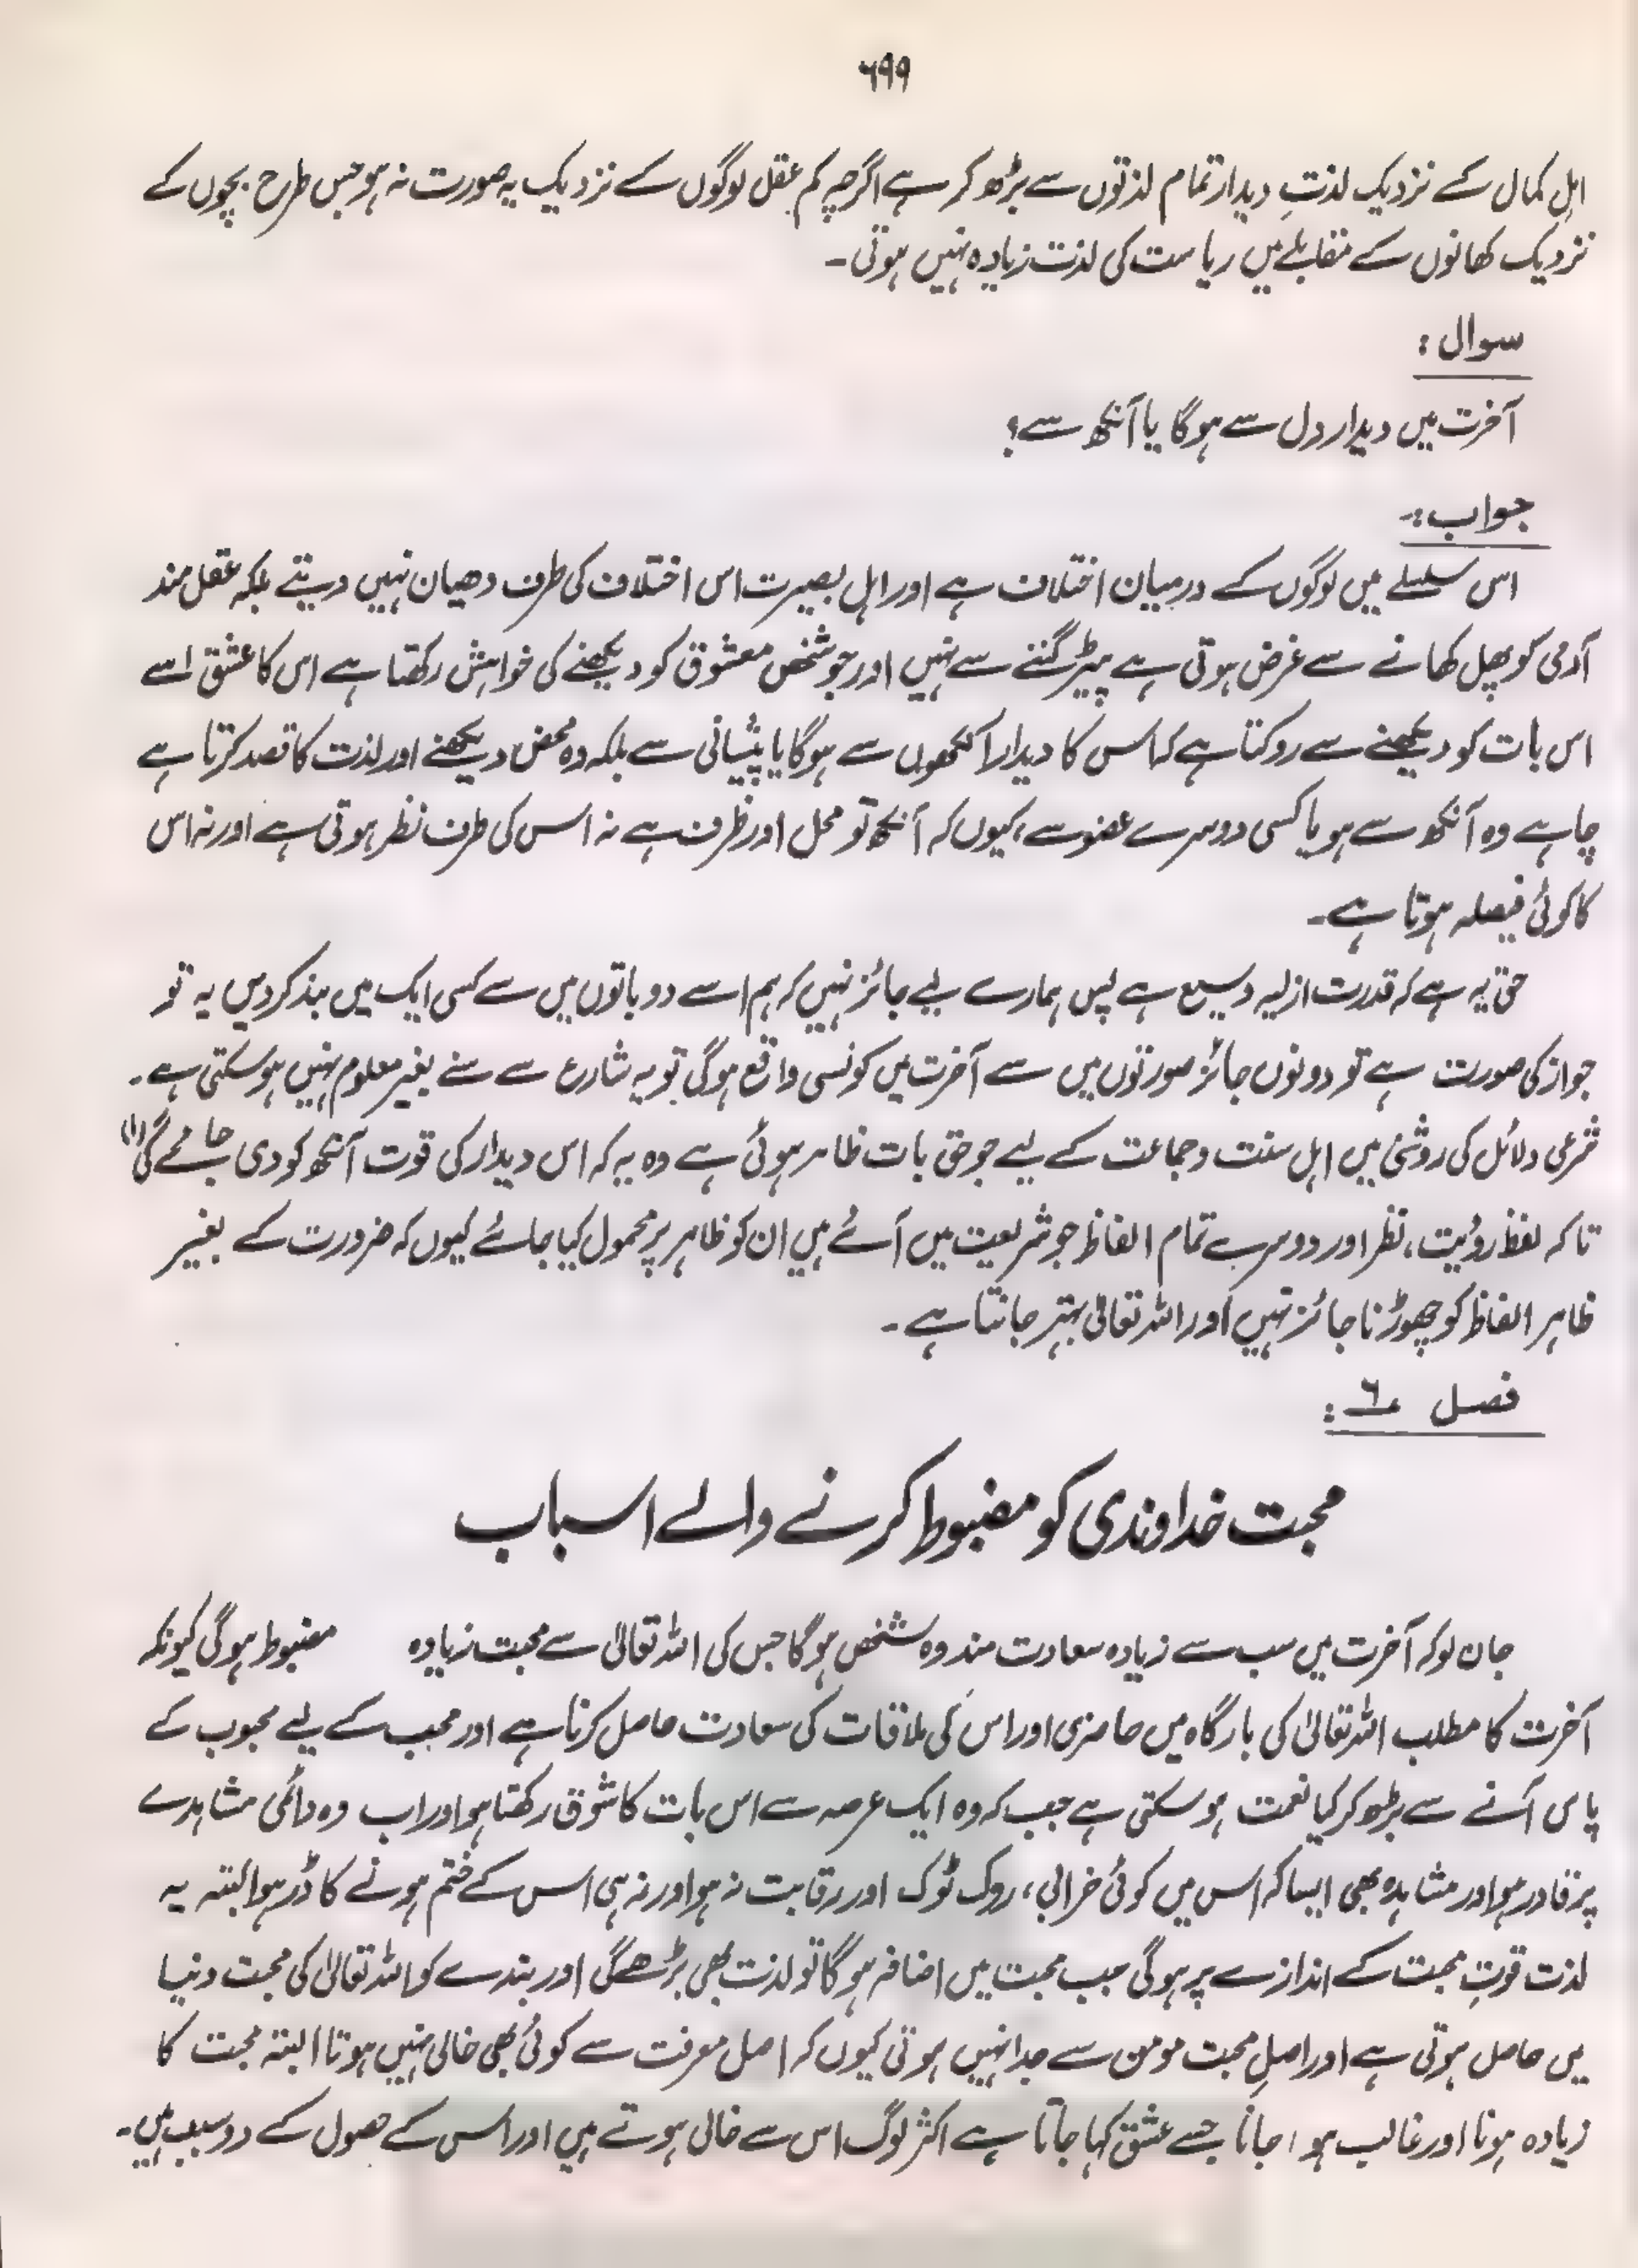 ۶۹۹
اہلِ کمال کے نزدیک لذتِ دیدار تمام لذتوں سے بڑھ کر ہے اگرچہ کم عقل لوگوں کے نزدیک یہ صورت نہ ہو جس طرح بچوں کے
نزدیک کھانوں کے مقابلے میں ریاست کی لذت زیادہ نہیں ہوتی۔
سوال :
آخرت میں دیدار دل سے ہوگا یا آنکھ سے؟
جواب :-
اس سلسلے میں لوگوں کے درمیان اختلاف ہے اور اہل بصیرت اس اختلاف کی طرف دھیان نہیں دیتے بلکہ عقل مند
آدمی کو پھل کھانے سے غرض ہوتی ہے پیڑ گننے سے نہیں اور جو شخص معشوق کو دیکھنے کی خواہش رکھتا ہے اس کا عشق اسے
اس بات کو دیکھنے سے روکتا ہے کہ اس کا دیدار آنکھوں سے ہوگا یا پیشانی سے بلکہ وہ محض دیکھنے اور لذت کا قصد کرتا ہے
چاہے وہ آنکھ سے ہو یا کسی دوسرے عضو سے، کیوں کہ آنکھ تو محل اور ظرف ہے نہ اس کی طرف نظر ہوتی ہے اور نہ اس
کا کوئی فیصلہ ہوتا ہے۔
حق یہ ہے کہ قدرت ازلیہ وسیع ہے پس ہمارے لیے جائز نہیں کہ ہم اسے دو باتوں میں سے کسی ایک میں بند کر دیں یہ تو
جواز کی صورت ہے تو دونوں جائز صورتوں میں سے آخرت میں کونسی واقع ہوگی تو یہ شارع سے سنے بغیر معلوم نہیں ہوسکتی ہے۔
شرعی دلائل کی روشنی میں اہل سنت وجماعت کے لیے جو حق بات ظاہر ہوئی ہے وہ یہ کہ اس دیدار کی قوت آنکھ کو دی جائے گی (۱)
تاکہ لفظ روئیت، نظر اور دوسرے تمام الفاظ جو شریعت میں آئے ہیں ان کو ظاہر پر محمول کیا جائے کیوں کہ ضرورت کے بغیر
ظاہر الفاظ کو چھوڑنا جائز نہیں اور اللہ تعالیٰ بہتر جانتا ہے۔
فصل ۶ :
محبت خداوندی کو مضبوط کرنے والے اسباب
جان لو کہ آخرت میں سب سے زیادہ سعادت مند وہ شخص ہوگا جس کی اللہ تعالیٰ سے محبت زیادہ مضبوط ہوگی کیونکہ
آخرت کا مطلب اللہ تعالیٰ کی بارگاہ میں حاضری اور اس کی ملاقات کی سعادت حاصل کرنا ہے اور محب کے لیے محبوب کے
پاس آنے سے بڑھ کر کیا نعمت ہوسکتی ہے جب کہ وہ ایک عرصہ سے اس بات کا شوق رکھتا ہو اور اب وہ دائمی مشاہدے
پر قادر ہو اور مشاہدہ بھی ایسا کہ اس میں کوئی خرابی، روک ٹوک اور رقابت نہ ہو اور نہ ہی اس کے ختم ہونے کا ڈر ہو البتہ یہ
لذت قوتِ محبت کے اندازے پر ہوگی جب محبت میں اضافہ ہوگا تو لذت بھی بڑھے گی اور بندے کو اللہ تعالیٰ کی محبت دنیا
میں حاصل ہوتی ہے اور اصلِ محبت مومن سے جدا نہیں ہوتی کیوں کہ اصل معرفت سے کوئی بھی خالی نہیں ہوتا البتہ محبت کا
زیادہ ہونا اور غالب ہو جانا جسے عشق کہا جاتا ہے اکثر لوگ اس سے خالی ہوتے ہیں اور اس کے حصول کے دو سبب ہیں۔